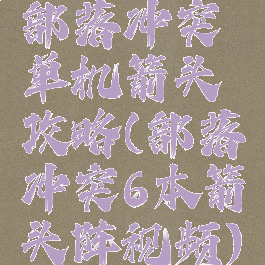 部落冲突
单机箭头
攻略(部落
冲突6本箭
头阵视频)